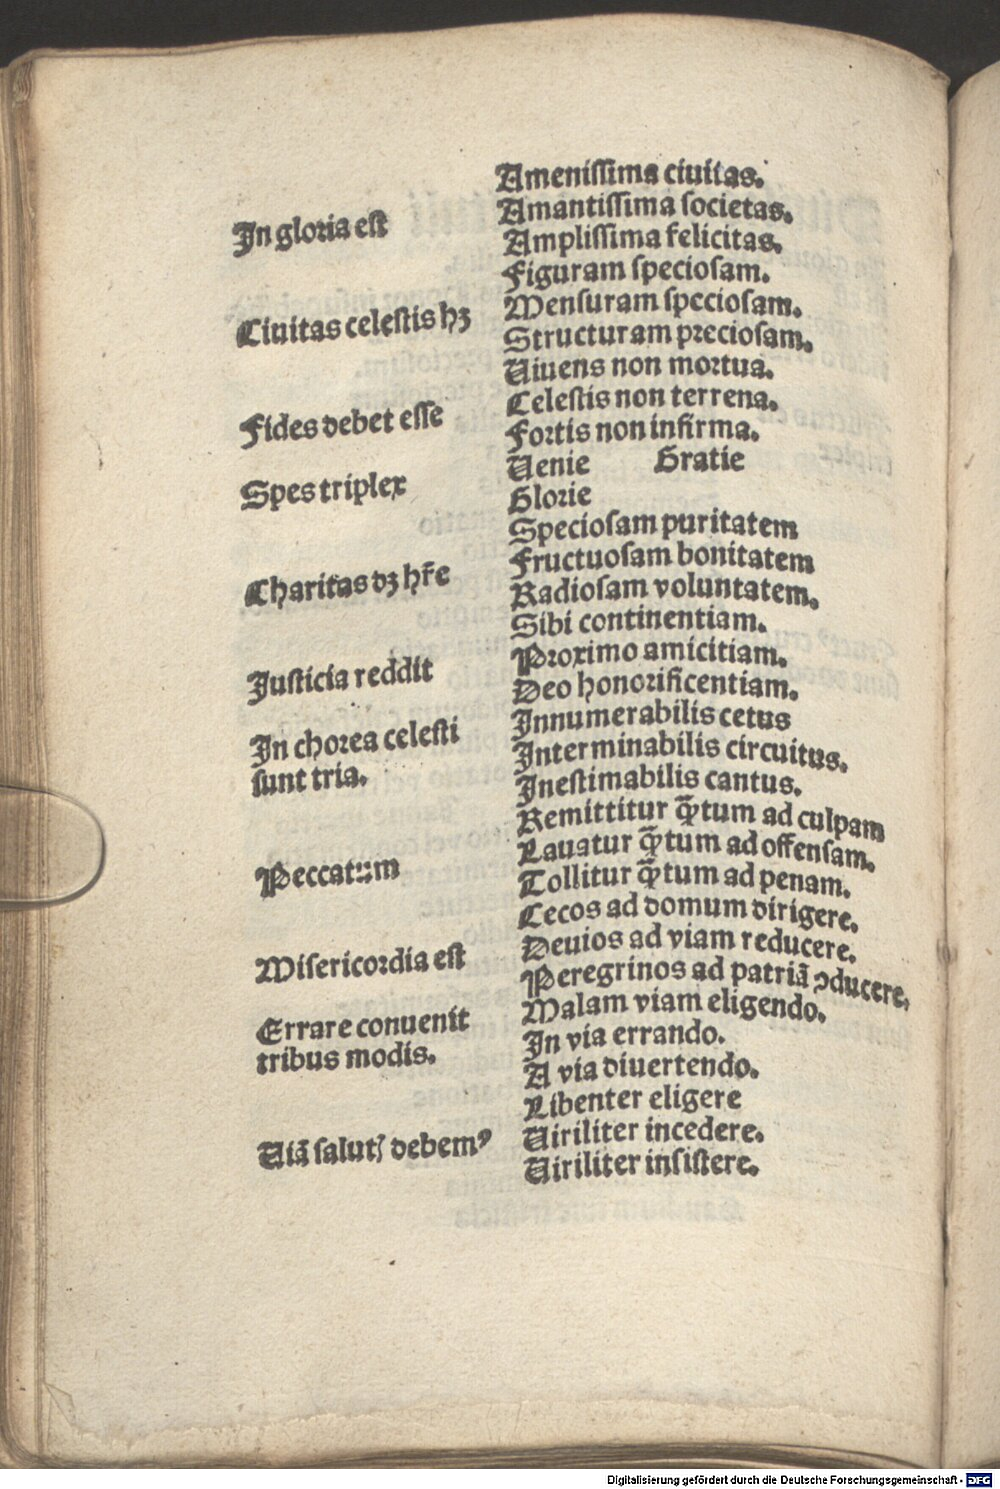 Amenissima ciuitas.
In gloria est
Amantissima societas.
Amplissima felicitas.
Figuram speciosam.
Ciuitas celestis hꝫ
Mensuram speciosam.
Structuram preciosam.
Uiuens non mortua.
Fides debet esse
Celestis non terrena.
Fortis non infirma.
Spes triplex
Uenie Gratie
Glorie
Speciosam puritatem
Charitas dꝫ hr̄e
Fructuosam bonitatem
Radiosam voluntatem.
Sibi continentiam.
Justicia reddit
Proximo amicitiam.
Deo honorificentiam.
In chorea celesti
sunt tria.
Innumerabilis cetus
Interminabilis circuitus.
Inestimabilis cantus.
Remittitur q̄ꝫtum ad culpam
Peccatum
Lauatur q̄ꝫtum ad offensam.
Tollitur q̄ꝫtum ad penam.
Cecos ad domum dirigere.
Misericordia est
Deuios ad viam reducere.
Peregrinos ad patriā ꝯducere.
Errare conuenit
tribus modis.
Malam viam eligendo.
In via errando.
A via diuertendo.
Libenter eligere
Uiā salutꝭ debemꝰ
Uiriliter incedere.
Uiriliter insistere.
Digitalisierung gefördert durch die Deutsche Forschungsgemeinschaft - DFG